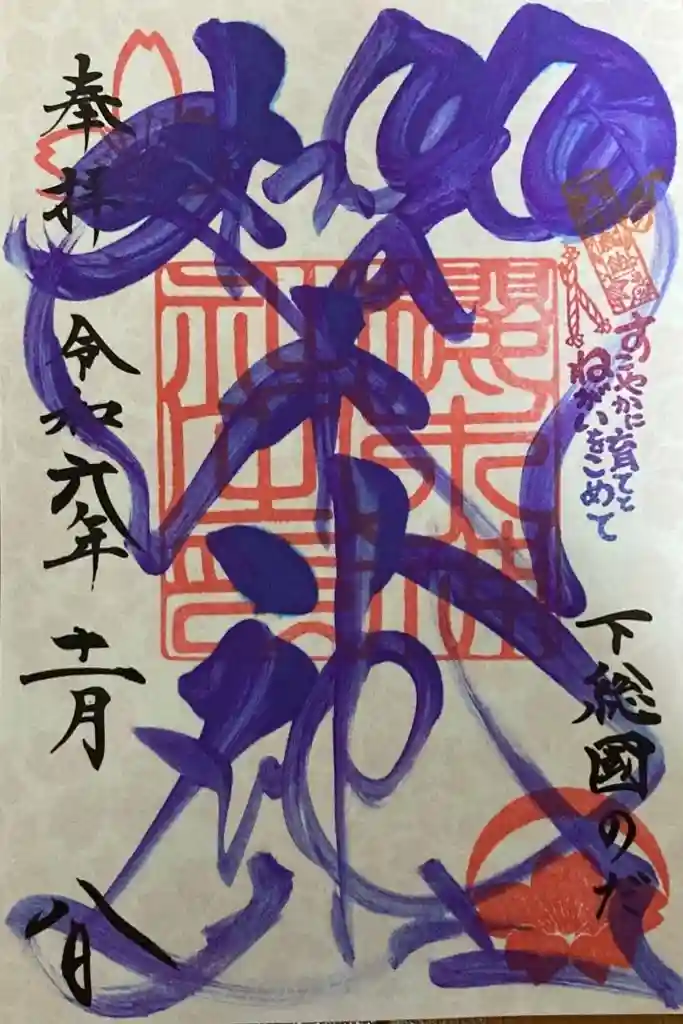 すこやかに育てと
ねがいをこめて
下総國のだ
櫻木神社
奉拝
令和六年
十一月
八日